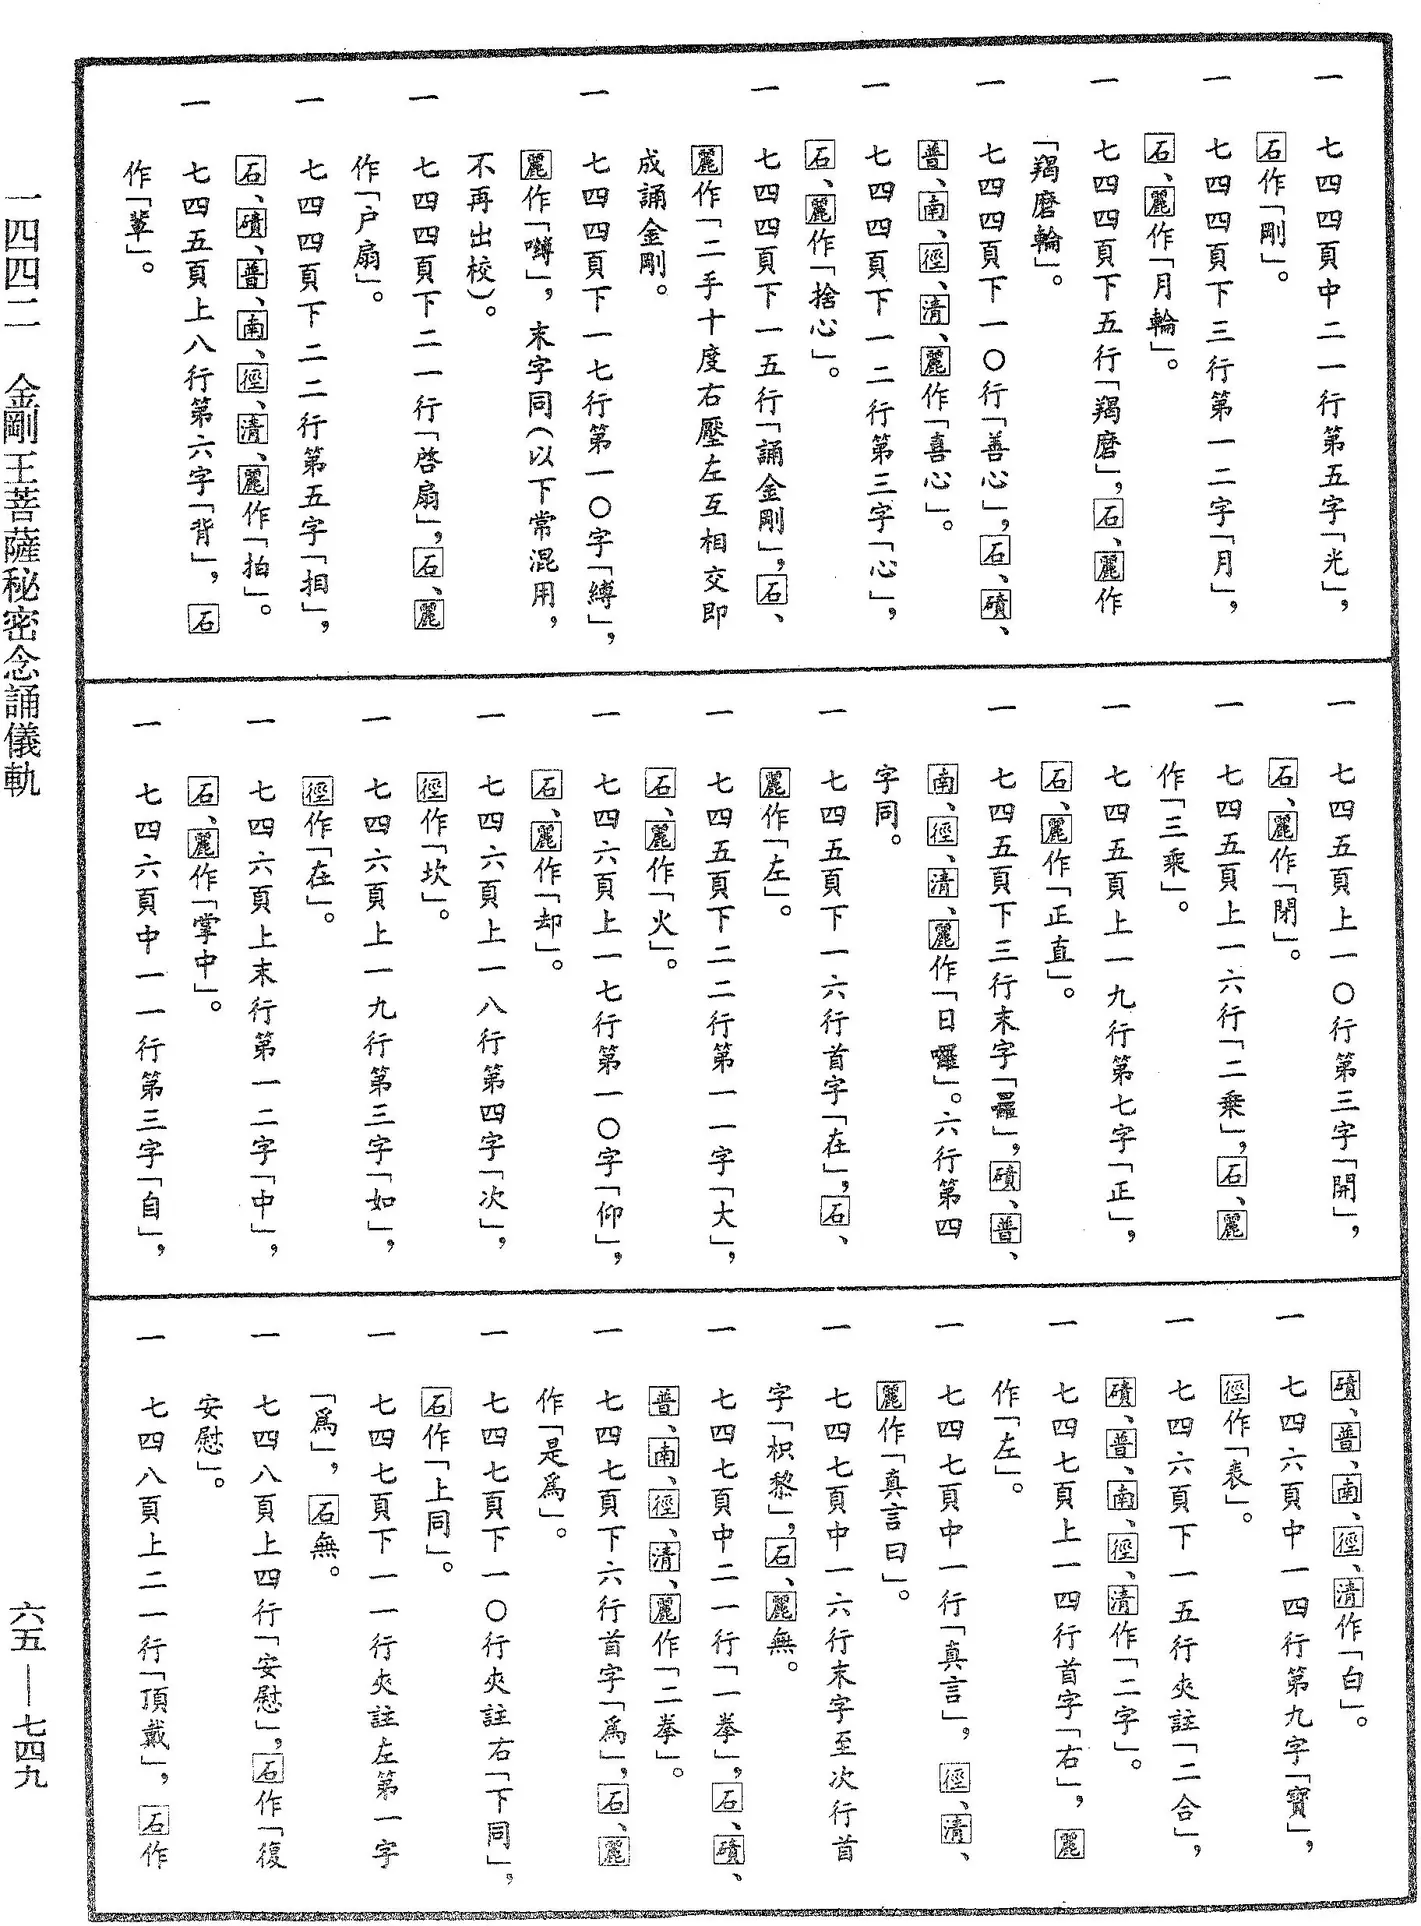 一 七四四頁中二一行第五字「光」，
石作「剛」。
一 七四四頁下三行第一二字「月」，
石、麗作「月輪」。
一 七四四頁下五行「羯磨」，石、麗作
「羯磨輪」。
一 七四四頁下一〇行「善心」，石、磧、
普、南、徑、清、麗作「喜心」。
一 七四四頁下一二行第三字「心」，
石、麗作「捨心」。
一 七四四頁下一五行「誦金剛」，石、
麗作「二手十度右壓左互相交即
成誦金剛。
一 七四四頁下一七行第一〇字「縛」，
麗作「嚩」，末字同(以下常混用，
不再出校)。
一 七四四頁下二一行「啓扇」，石、麗
作「户扇」。
一 七四四頁下二二行第五字「抇」，
石、磧、普、南、徑、清、麗作「拍」。
一 七四五頁上八行第六字「背」，石
作「輩」。
一 七四五頁上一〇行第三字「開」，
石、麗作「閉」。
一 七四五頁上一六行「二乘」，石、麗
作「三乘」。
一 七四五頁上一九行第七字「正」，
石、麗作「正直」。
一 七四五頁下三行末字「㘓」，磧、普、
南、徑、清、麗作「日囉」。六行第四
字同。
一 七四五頁下一六行首字「在」，石、
麗作「左」。
一 七四五頁下二二行第一一字「大」，
石、麗作「火」。
一 七四六頁上一七行第一〇字「仰」，
石、麗作「却」。
一 七四六頁上一八行第四字「次」，
徑作「坎」。
一 七四六頁上一九行第三字「如」，
徑作「在」。
一 七四六頁上末行第一二字「中」，
石、麗作「掌中」。
一 七四六頁中一一行第三字「自」，
磧、普、南、徑、清作「白」。
一 七四六頁中一四行第九字「寶」，
徑作「表」。
一 七四六頁下一五行夾註「二合」，
磧、普、南、徑、清作「二字」。
一 七四七頁上一四行首字「右」，麗
作「左」。
一 七四七頁中一行「真言」，徑、清、
麗作「真言曰」。
一 七四七頁中一六行末字至次行首
字「枳黎」，石、麗無。
一 七四七頁中二一行「一拳」，石、磧、
普、南、徑、清、麗作「二拳」。
一 七四七頁下六行首字「爲」，石、麗
作「是爲」。
一 七四七頁下一〇行夾註右「下同」，
石作「上同」。
一 七四七頁下一一行夾註左第一字
「爲」，石無。
一 七四八頁上四行「安慰」，石作「復
安慰」。
一 七四八頁上二一行「頂戴」，石作
一四四二 金剛王菩薩秘密念誦儀軌
六五—七四九